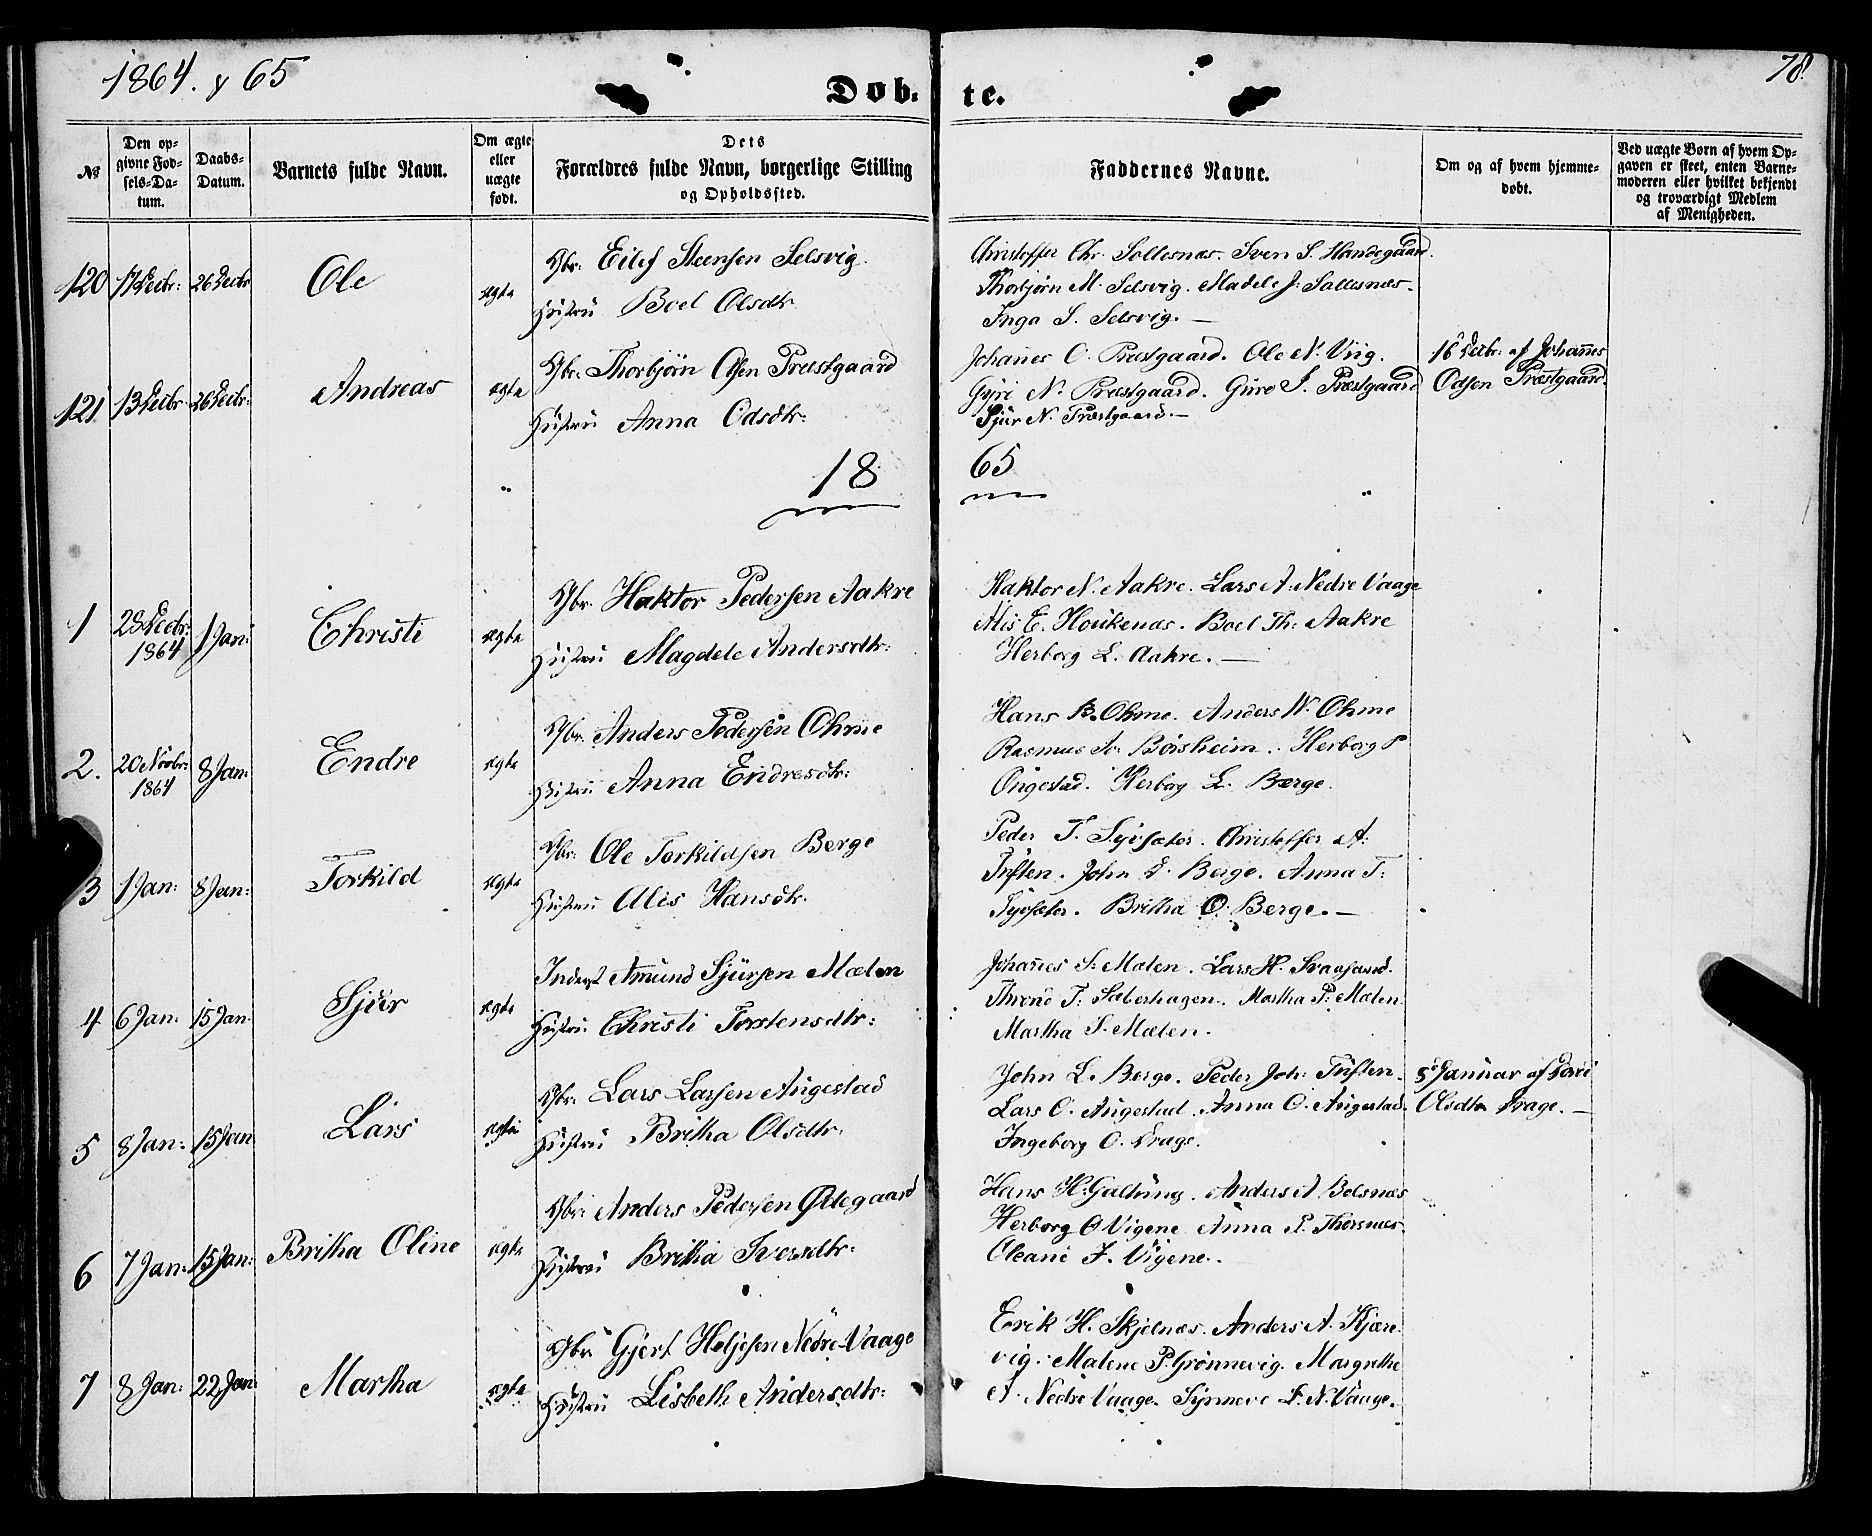 1864. & 65
78.
Døb- te.
No
Den op-
givne Fød-
sels-Da-
tum.
Daabs-
Datum.
Barnets fulde Navn.
Om ægte
eller
uægte
født.
Dets
Forældres fulde Navn, borgerlige Stilling
og Opholdssted.
Faddernes Navne.
Om og af hvem hjemme-
døbt.
Ved uægte Børn af hvem Op-
gaven er skeet, enten Barne-
moderen eller hvilket bekjendt
og troværdigt Medlem
af Menigheden.
120 17 Decbr: 26 Decbr Ole ægte
Gbr: Eilef Steensen Selsvig.
Hustru Boel Olsdtr.
Christoffer Chr. Sollesnæs. Sven S. Handegaard.
Thorbjørn M. Selsvig. Madele J. Sollesnæs.
Inga S. Selsvig. —
121 13 Decbr 26 Decbr: Andreas ægte
Gbr: Thorbjörn Olsen Præstgaard
Hustru Anna Odsdtr.
Johannes O. Præstgaard. Ole N. Viig.
Gyri N. Præstgaard. Guro S. Præstgaard
Sjur N. Præstgaard. —
16 Decbr. af Johannes
Odsen Præstgaard.
18 65
1 28 Decbr: 1864 1 Jan: Christi ægte
Gbr. Haktor Pedersen Aakre
Hustru Magdele Andersdtr:
Haktor N. Aakre. Lars A. Nedre Vaage
Alis E. Houkenæs. Boel Th: Aakre
Herborg L. Aakre. —
2. 20 Novbr: 1864 8 Jan: Endre ægte
Gbr. Anders Pedersen Ohme
Hustru Anna Endresdtr:
Hans B. Ohme. Anders N. Ohme
Rasmus Børsheim. Herborg P
Ongestad. Herborg L. Berge.
3 1 Jan: 8 Jan: Torkild ægte
Gbr: Ole Torkildsen Berge
Hustru Alis Hansdtr.
Peder T. Christoffer A.
Tuften. John L. Berge. Anna T:
Britha O. Berge. —
4 6 Jan. 15 Jan. Sjur ægte
Inderst Amund Sjursen Mælen
Hustru Christi Torstensdtr:
Johannes S. Mælen. Lars H.
T: Martha P. Mælen.
Martha S. Mælen.
5 8 Jan: 15 Jan Lars ægte
Gbr. Lars Larsen Augestad
Hustru Britha Olsdtr:
John L. Berge. Peder Joh: Tuften.
Lars O. Augestad. Anna O. Augestad.
Ingeborg O. Drage.
5 Januar af
Olsdtr Drage. —
6 7 Jan: 15 Jan: Britha Oline ægte
Gbr: Anders Pedersen Ødegaard
Hustru Britha Iversdtr:
Hans H. Galtung. Anders A. Belsnæs
Herborg O Vigene Anna P. Thorsnæs.
Oleane J. Vigene.
7 8 Jan: 22 Jan: Martha ægte
Gbr Gjert Heljesen Nedre Vaage
Hustru Lisbeth Andersdtr:
Erik H. Skjelnæs. Anders A. Kjære-
vig. Malene P. Grønnevig. Margrethe
A. Nedre Vaage. Synneve L. N. Vaage.